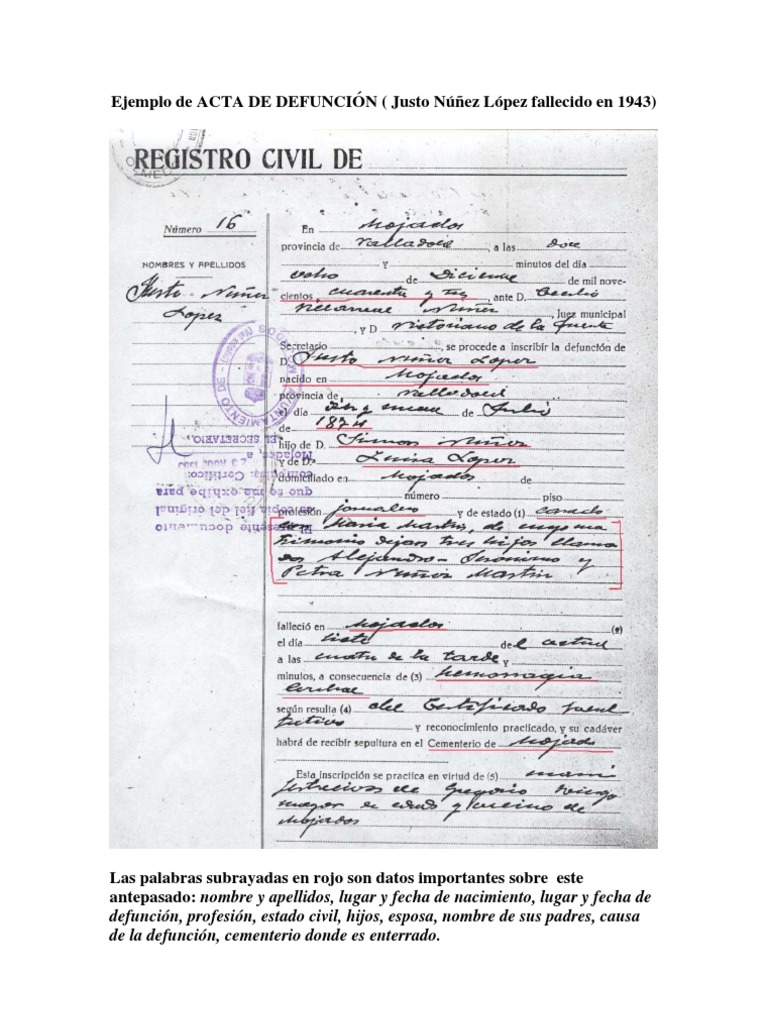 Ejemplo de ACTA DE DEFUNCIÓN ( Justo Núñez López fallecido en 1943)
REGISTRO CIVIL DE
Número 16
NOMBRES Y APELLIDOS
Justo Núñez
Lopez
En Mojados
provincia de Valladolid, a las doce
y minutos del día
ocho de Diciembre de mil nove-
cientos cuarenta y tres, ante D. Cecilio
Villarreal Núñez, Juez municipal
, y D. Victoriano de la Fuente
Secretario, se procede a inscribir la defunción de
D. Justo Núñez Lopez
nacido en Mojados
provincia de Valladolid
el día de Julio
de 1874
hijo de D. Simon Núñez
y de D. Luisa Lopez
domiciliado en Mojados de
número piso
profesión jornalero y de estado (1) casado
con Maria Martin, de cuyo ma
trimonio dejan tres hijos llama
dos Alejandro - Jeronimo y
Petra Nuñez Martin
falleció en Mojados (2)
el día siete del actual
a las cuatro de la tarde y
minutos, a consecuencia de (3) hemorragia
cerebral
según resulta (4) del Certificado facul
tativo y reconocimiento practicado, y su cadáver
habrá de recibir sepultura en el Cementerio de Mojados
Esta inscripción se practica en virtud de (5) mani
festaciones de Gregorio
mayor de edad y vecino de
Mojados
AYUNTAMIENTO DE
El presente documento
es copia fiel del original
que se me exhibe para
compulsa. Certifico:
Mojados, a
EL SECRETARIO.
Las palabras subrayadas en rojo son datos importantes sobre este
antepasado: nombre y apellidos, lugar y fecha de nacimiento, lugar y fecha de
defunción, profesión, estado civil, hijos, esposa, nombre de sus padres, causa
de la defunción, cementerio donde es enterrado.